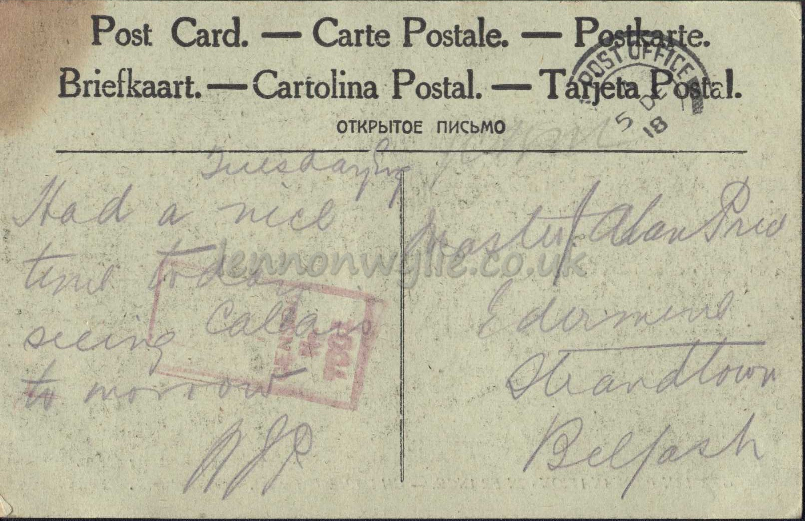 Post Card. — Carte Postale. — Postkarte.
Briefkaart. — Cartolina Postal. — Tarjeta Postal.
ОТКРЫТОЕ ПИСЬМО
POST OFFICE
5 DE
18
Tuesday Evg
Had a nice
time today
seeing Calais
to morrow
Master Alan Price
Edermine
Strandtown
Belfast
lennonwylie.co.uk